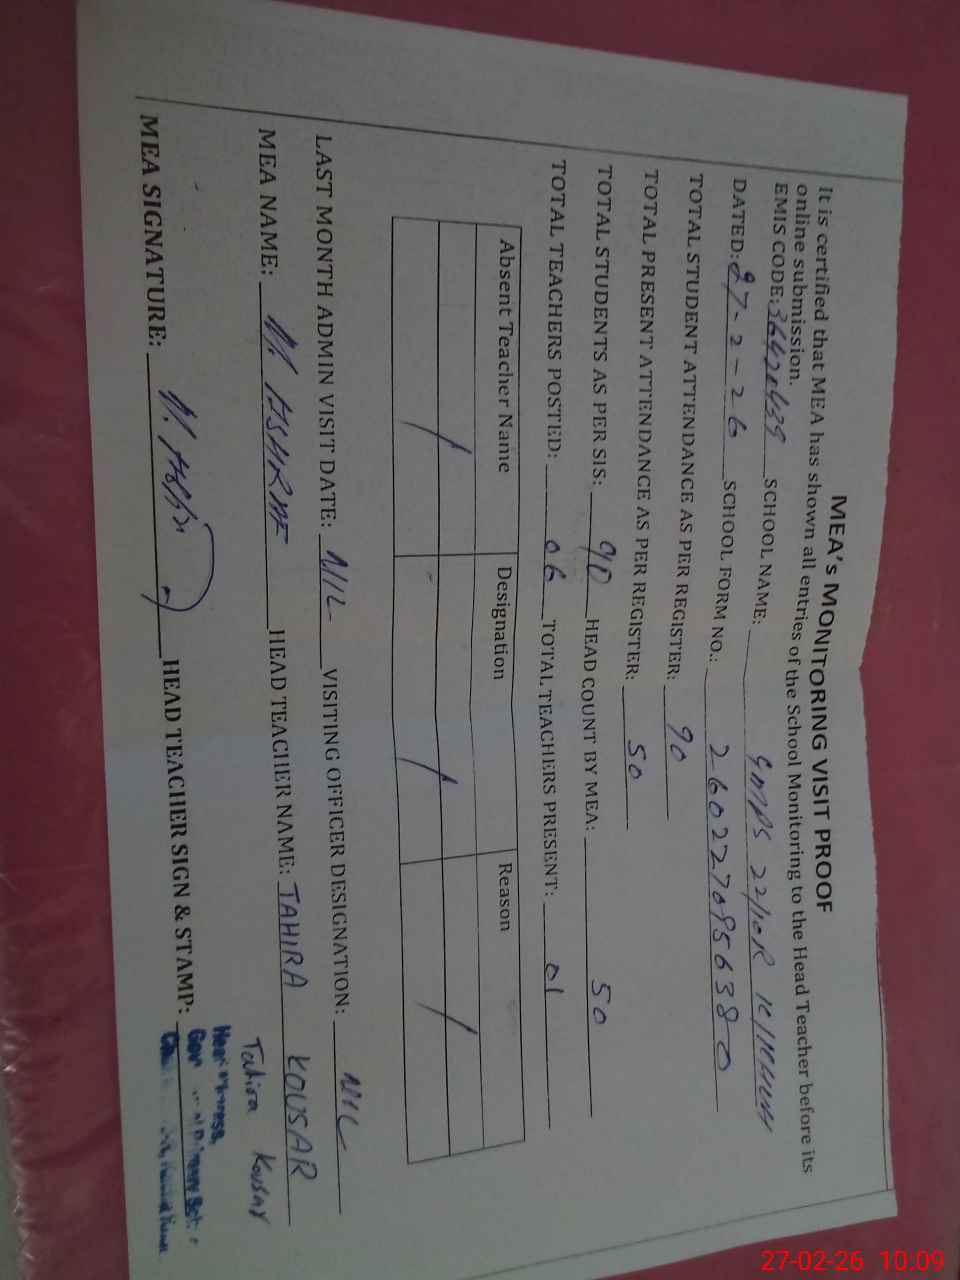 MEA's MONITORING VISIT PROOF
It is certified that MEA has shown all entries of the School Monitoring to the Head Teacher before its
online submission.
EMIS CODE: SCHOOL NAME: GMPS 22/10R
DATED: 27-2-26 SCHOOL FORM NO.: 2602270956380
TOTAL STUDENT ATTENDANCE AS PER REGISTER: 90
TOTAL PRESENT ATTENDANCE AS PER REGISTER: 50
TOTAL STUDENTS AS PER SIS: 90 HEAD COUNT BY MEA: 50
TOTAL TEACHERS POSTED: 06 TOTAL TEACHERS PRESENT: 01
Absent Teacher Name Designation Reason
/ / /
LAST MONTH ADMIN VISIT DATE: NIL VISITING OFFICER DESIGNATION: NIL
MEA NAME: HEAD TEACHER NAME: TAHIRA KOUSAR
Tahira Kousar
MEA SIGNATURE: HEAD TEACHER SIGN & STAMP:
27-02-26 10:09